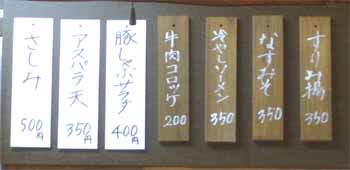 すりみ揚
350
なすみそ
350
冷やしソーメン
350
牛肉コロッケ
200
豚しゃぶサラダ
400円
アスパラ天
350円
さしみ
500円